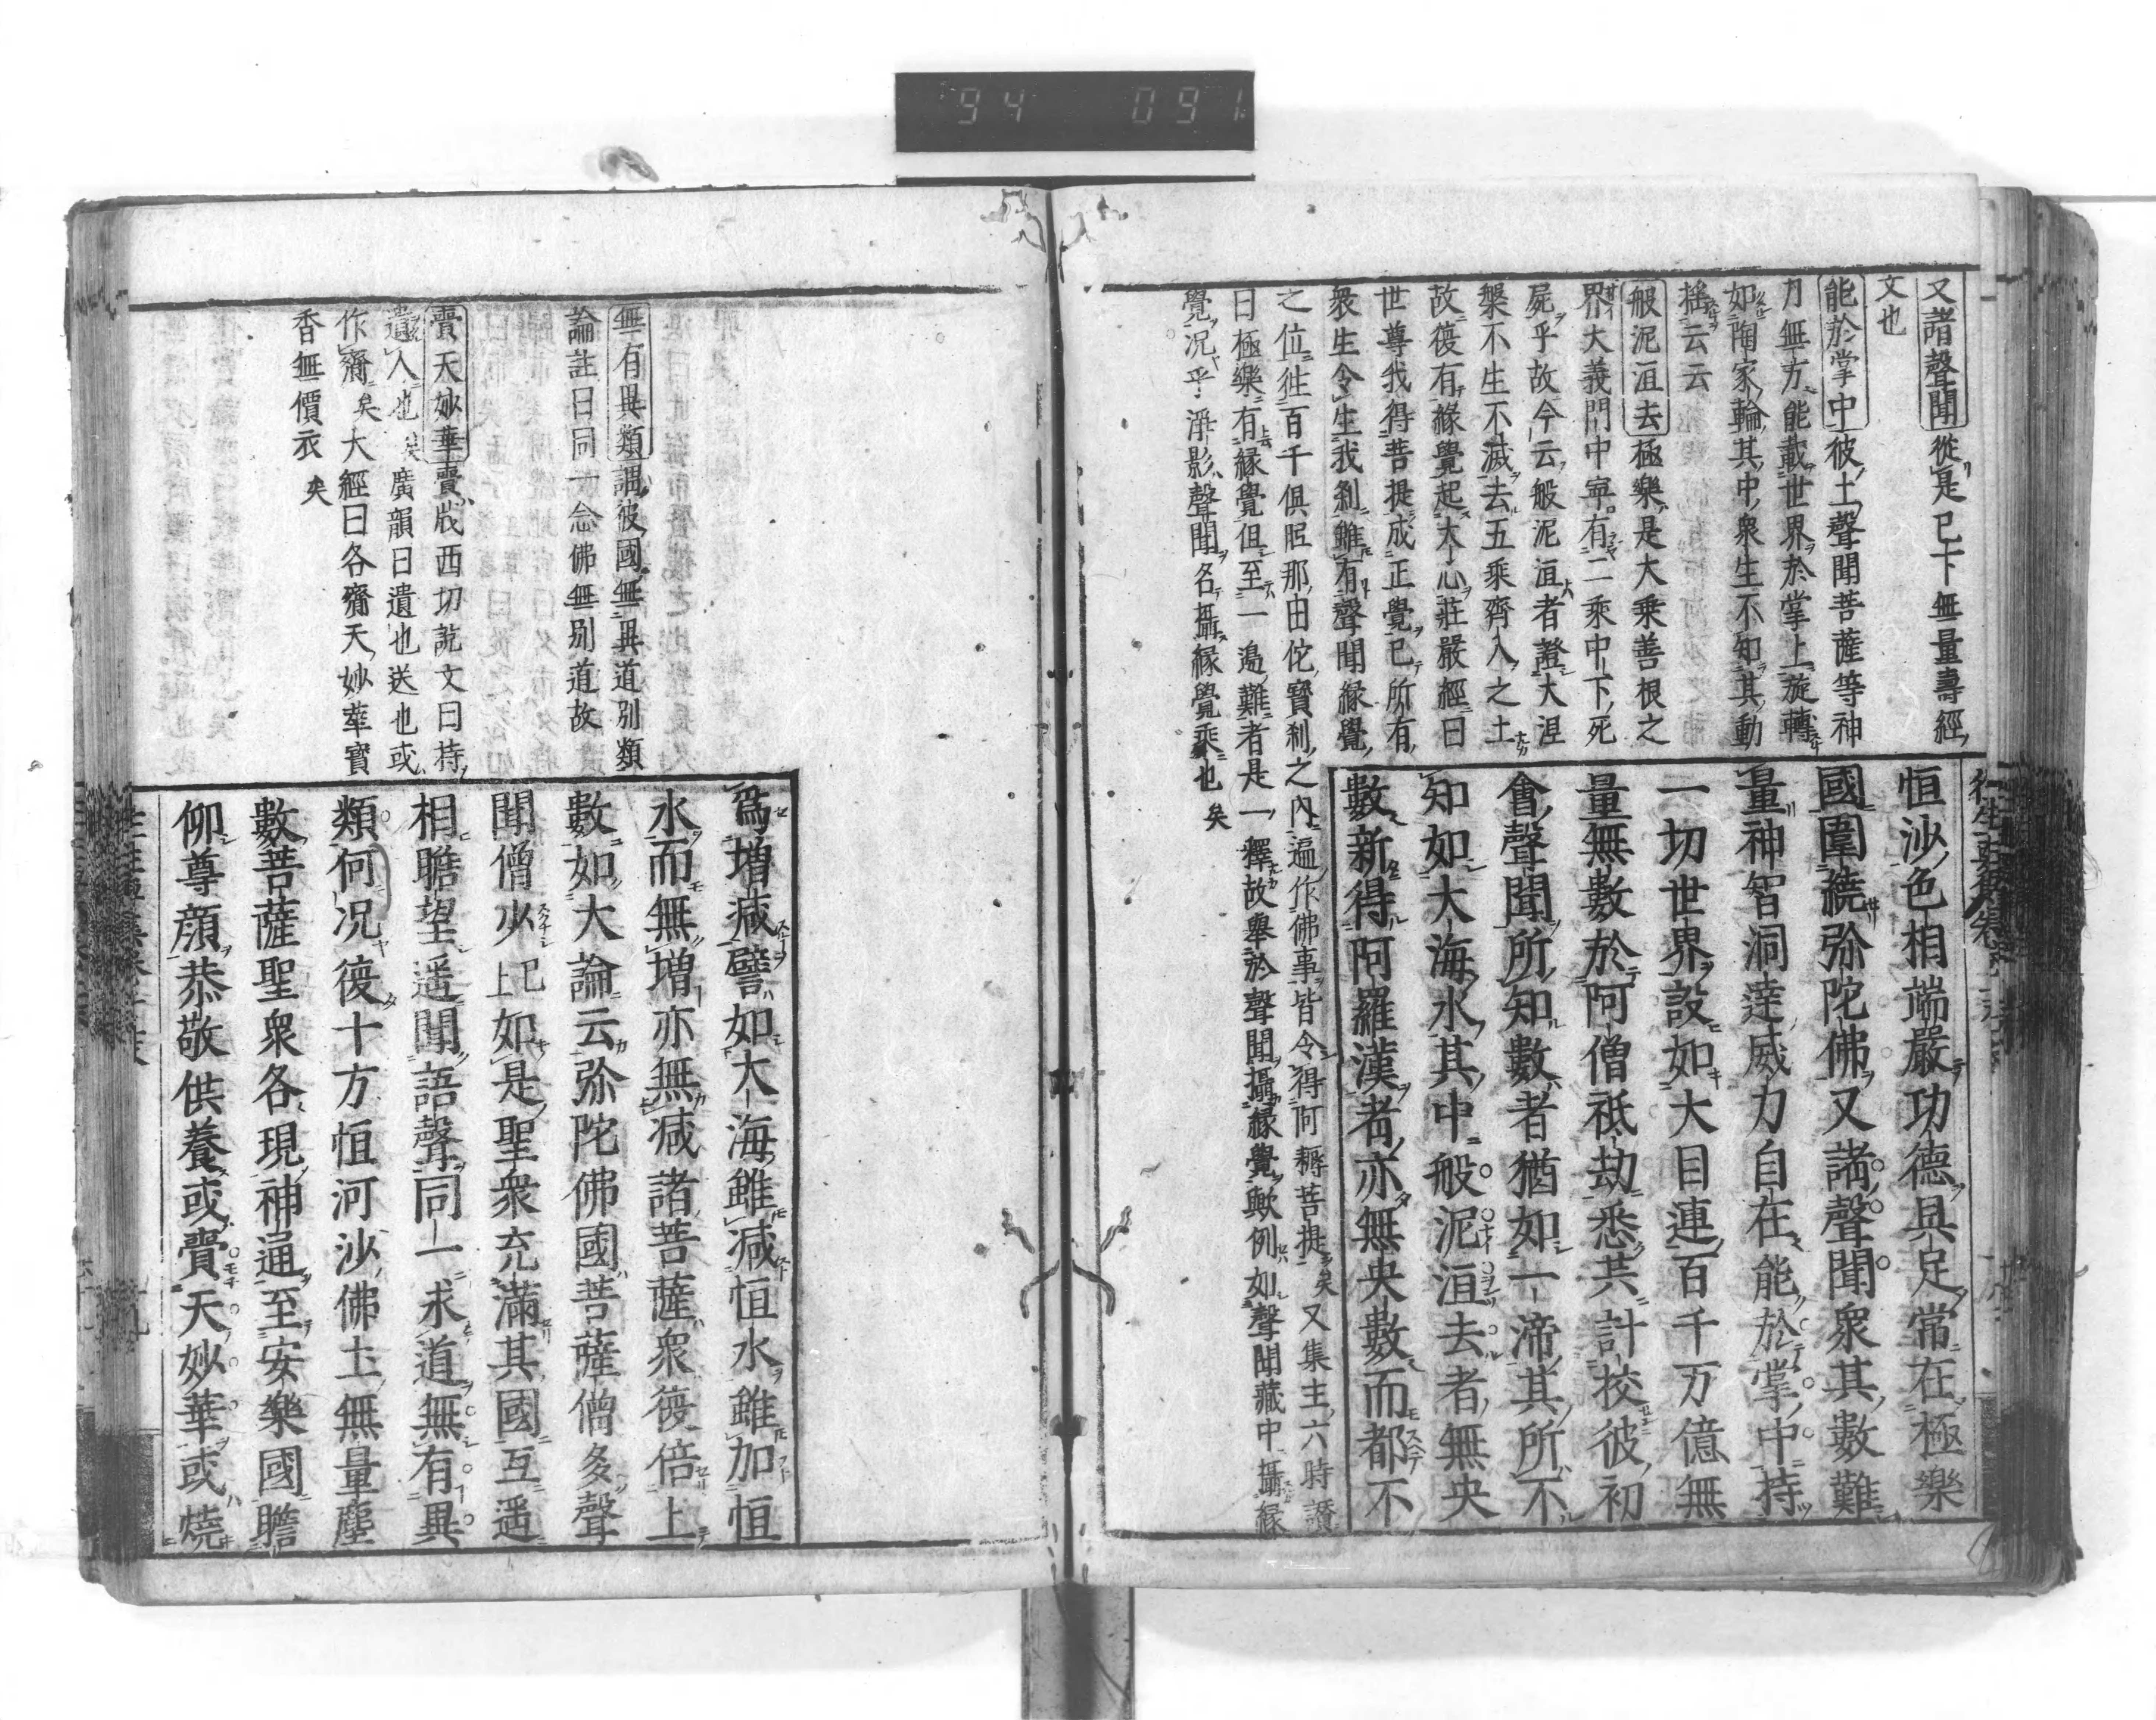 94 091
又諸聲聞從是已下無量壽經
文也
能於掌中彼土聲聞菩薩等神
力無方能載世界於掌上旋轉
如陶家輪其中衆生不知其動
搖云云
般泥洹去極樂是大乘善根之
界大義門中寧有二乘中下死
屍乎故今云般泥洹者證大涅
槃不生不滅去五乘齊入之土
故復有緣覺起大心莊嚴經曰
世尊我得菩提成正覺已所有
衆生令生我刹雖有聲聞緣覺
之位徃百千俱胝那由佗寳刹之內遍作佛事皆令得阿耨菩提矣又集主六時讃
曰極樂有緣覺但至一邉難者是一釋故舉於聲聞攝緣覺歟例如聲聞藏中攝緣
覺况乎淨影聲聞名攝緣覺乘也矣
恒沙色相端嚴功德具足常在極樂
國圍繞弥陀佛又諸聲聞衆其數難
量神智洞達威力自在能於掌中持
一切世界設如大目連百千万億無
量無數於阿僧祇劫悉共計挍彼初
會聲聞所知數者猶如一渧其所不
知如大海水其中般泥洹去者無央
數新得阿羅漢者亦無央數而都不
無有異類謂彼國無異道別類
論註曰同一念佛無別道故
賷天妙華賷戕西切説文曰持
遺人也矣廣韻曰遺也送也或
作齎矣大經曰各齎天妙華寳
香無價衣矣
爲増减譬如大海雖减恒水雖加恒
水而無増亦無减諸菩薩衆復倍上
數如大論云弥陀佛國菩薩僧多聲
聞僧少已上如是聖衆充滿其國互遥
相瞻望遥聞語聲同一求道無有異
類何况復十方恒河沙佛土無量塵
數菩薩聖衆各現神通至安樂國瞻
仰尊顔恭敬供養或賷天妙華或燒